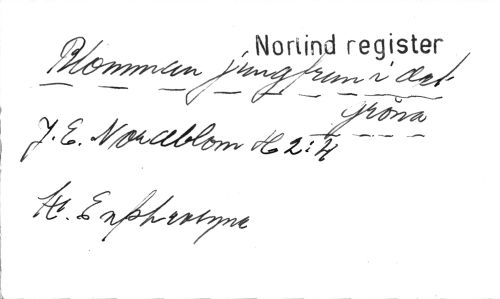 Norlind register
Blomman jungfrun i det
gröna
J. E. Nordblom H 2:4
H. Euphrosyne